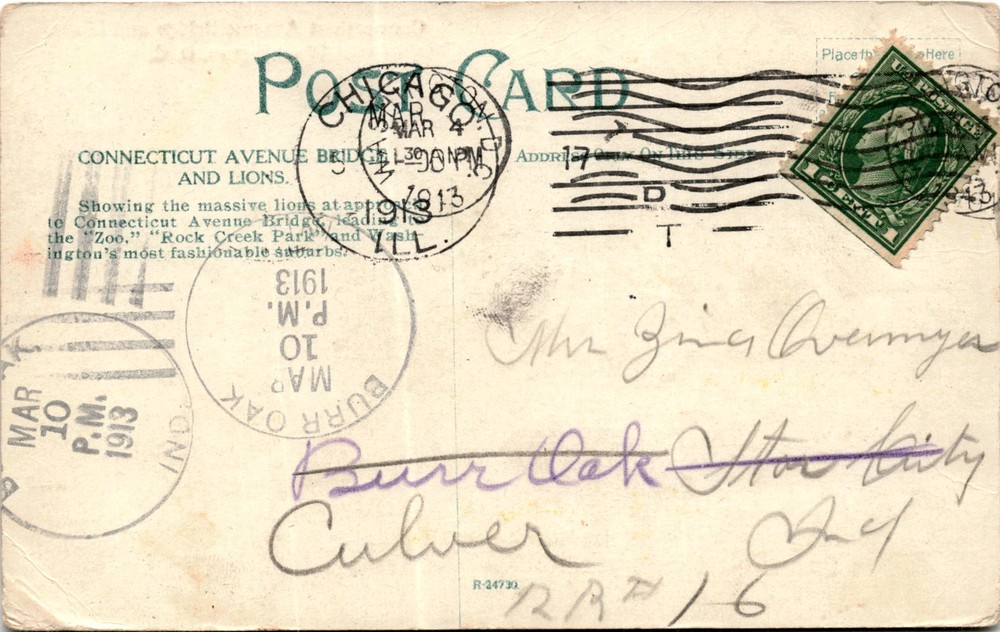 POST CARD
Place Here
CONNECTICUT AVENUE BRIDGE
AND LIONS.
Showing the massive lions at
to Connecticut Avenue Bridge, leading
the "Zoo." "Rock Creek Park" and Wash-
ington's most fashionable suburbs.
ADDRESS ONLY ON THIS SIDE
CHICAGO,
MAR
5
1913
ILL.
MAR 4
1913
17
D
T
U.S. POSTAGE
1 CENT 1
BURR OAK
MAR
10
P.M.
1913
MAR
10
P.M.
1913
IND.
Mrs Zina Overmyer
Burr Oak Star City
Culver Ind
RR# 16
R-24730